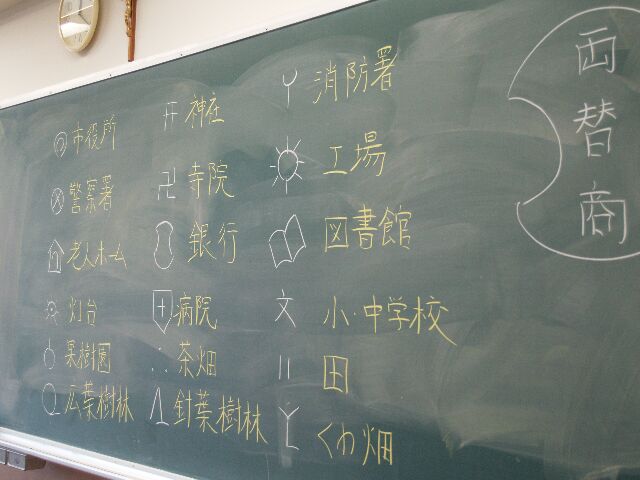 市役所
警察署
老人ホーム
灯台
果樹園
広葉樹林
神社
卍 寺院
銀行
病院
∴ 茶畑
針葉樹林
消防署
工場
図書館
文 小・中学校
田
くわ畑
両替商